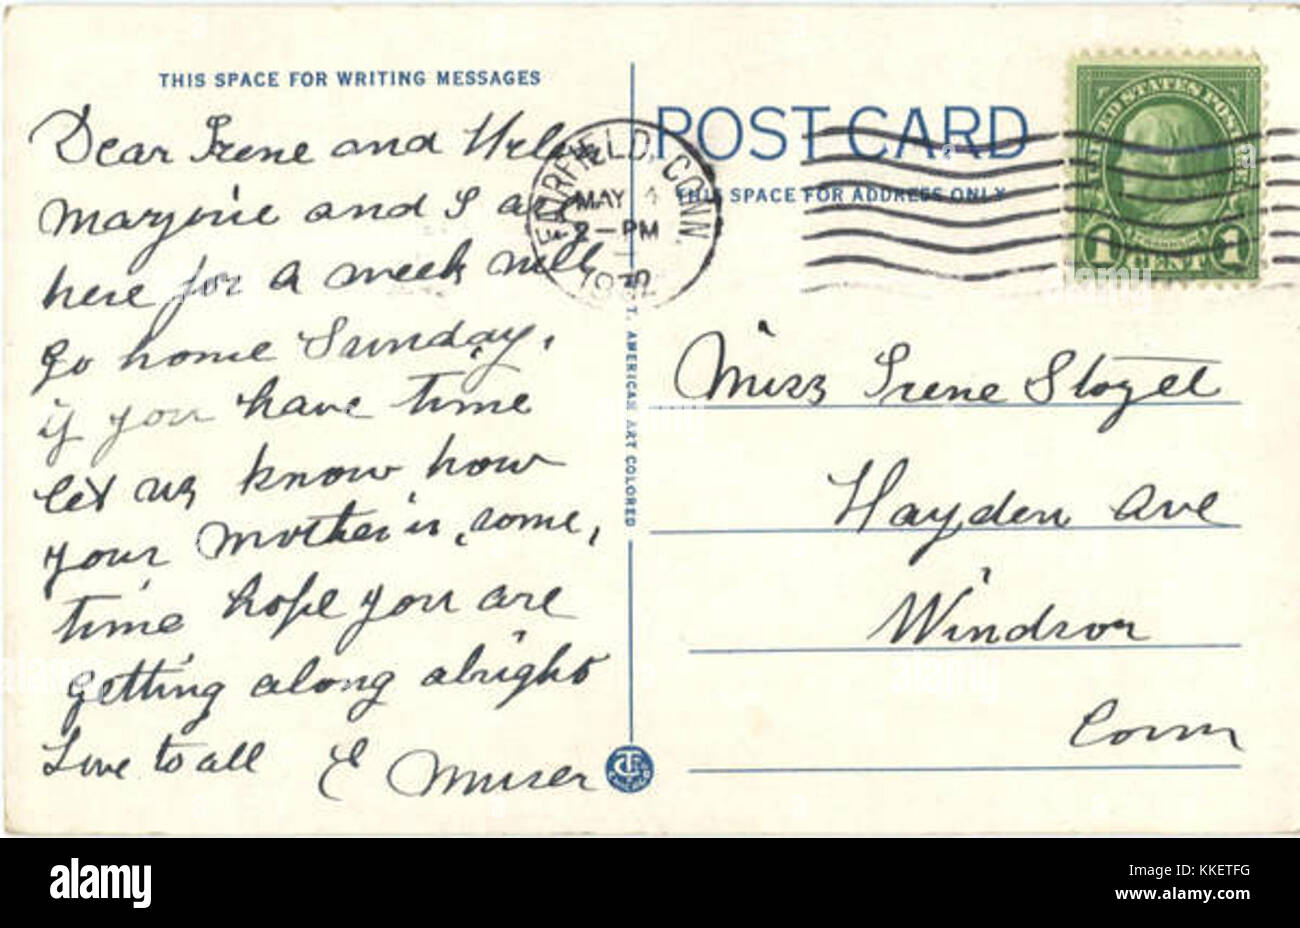 THIS SPACE FOR WRITING MESSAGES
Dear Irene and Helen
Marjorie and I are
here for a week will
go home Sunday.
if you have time
let us know how
your mother is, some,
time, hope you are
getting along alright
Love to all E Muser
POST CARD
THIS SPACE FOR ADDRESS ONLY
FAIRFIELD, CONN.
MAY 4
2-PM
1932
UNITED STATES POSTAGE
FRANKLIN
1 CENT 1
C. T. AMERICAN ART COLORED
Miss Irene Stozet
Hayden Ave
Windsor
Conn
CT
CHICAGO
alamy
Image ID: KKETFG
www.alamy.com